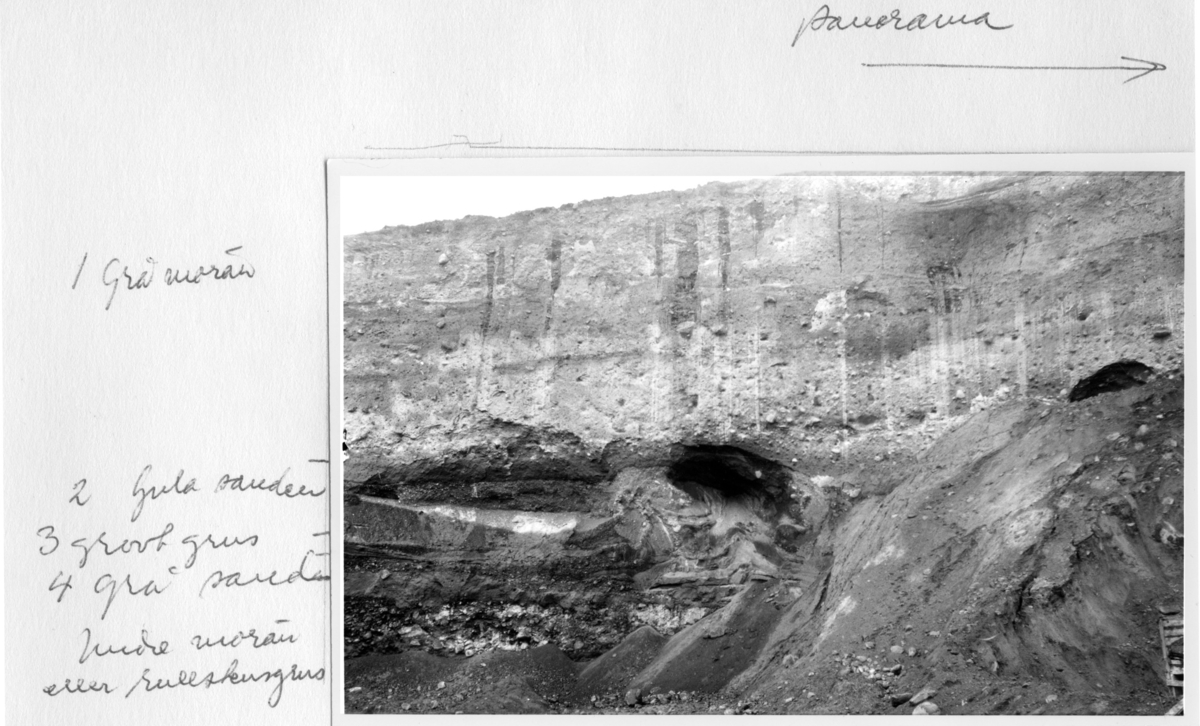 panorama
1 Grå morän
2 Gula sanden
3 grovt grus
4 grå sanden
Undre morän
eller rullstensgrus